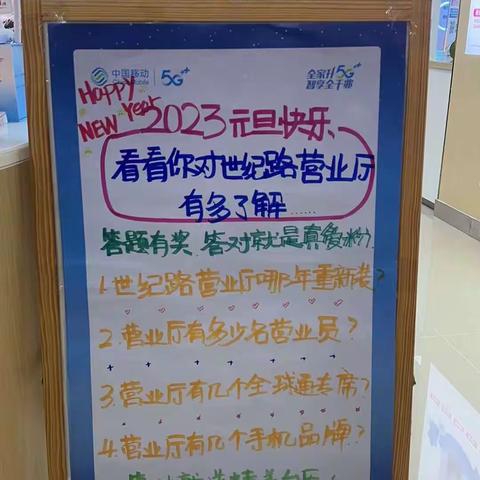 中国移动 5G++
China Mobile
全家升5G++
智享全千兆
HAPPY
NEW Year
2023元旦快乐、
看看你对世纪路营业厅
有多了解……
答题有奖、答对就是真爱粉？
1.世纪路营业厅哪年重新装？
2.营业厅有多少名营业员？
3.营业厅有几个全球通专席？
4.营业厅有几个手机品牌？